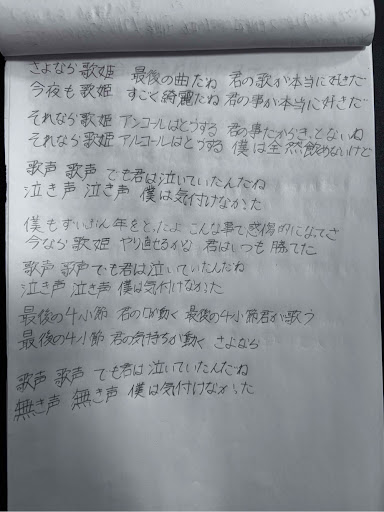 さよなら 歌姫 最後の曲だね 君の歌が本当に好きだ
今夜も 歌姫 すごく綺麗だね 君の事が本当に好きだ
それなら 歌姫 アンコールはどうする 君の事だからきっとないね
それなら 歌姫 アルコールはどうする 僕は全然飲めないけど
歌声 歌声 でも君は泣いていたんだね
泣き声 泣き声 僕は気付けなかった
僕もずいぶん年をとったよ こんな事で感傷的になってさ
今なら 歌姫 やり直せるかな 君はいつも 勝てた
歌声 歌声 でも君は泣いていたんだね
泣き声 泣き声 僕は気付けなかった
最後の4小節 君の口が動く 最後の4小節君が歌う
最後の4小節 君の気持ちが動く さよなら
歌声 歌声 でも君は泣いていたんだね
無き声 無き声 僕は気付けなかった